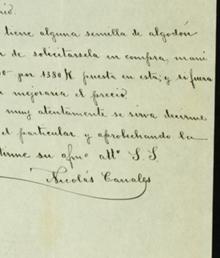 tiene alguna semilla de algodón
de solicitársela en compra, mani
por 1380 K puesta en esta; y si fuera
mejorara el precio.
muy atentamente se sirva decirme
el particular y aprobechando la
su afmo atto S. S.
Nicolás Canales